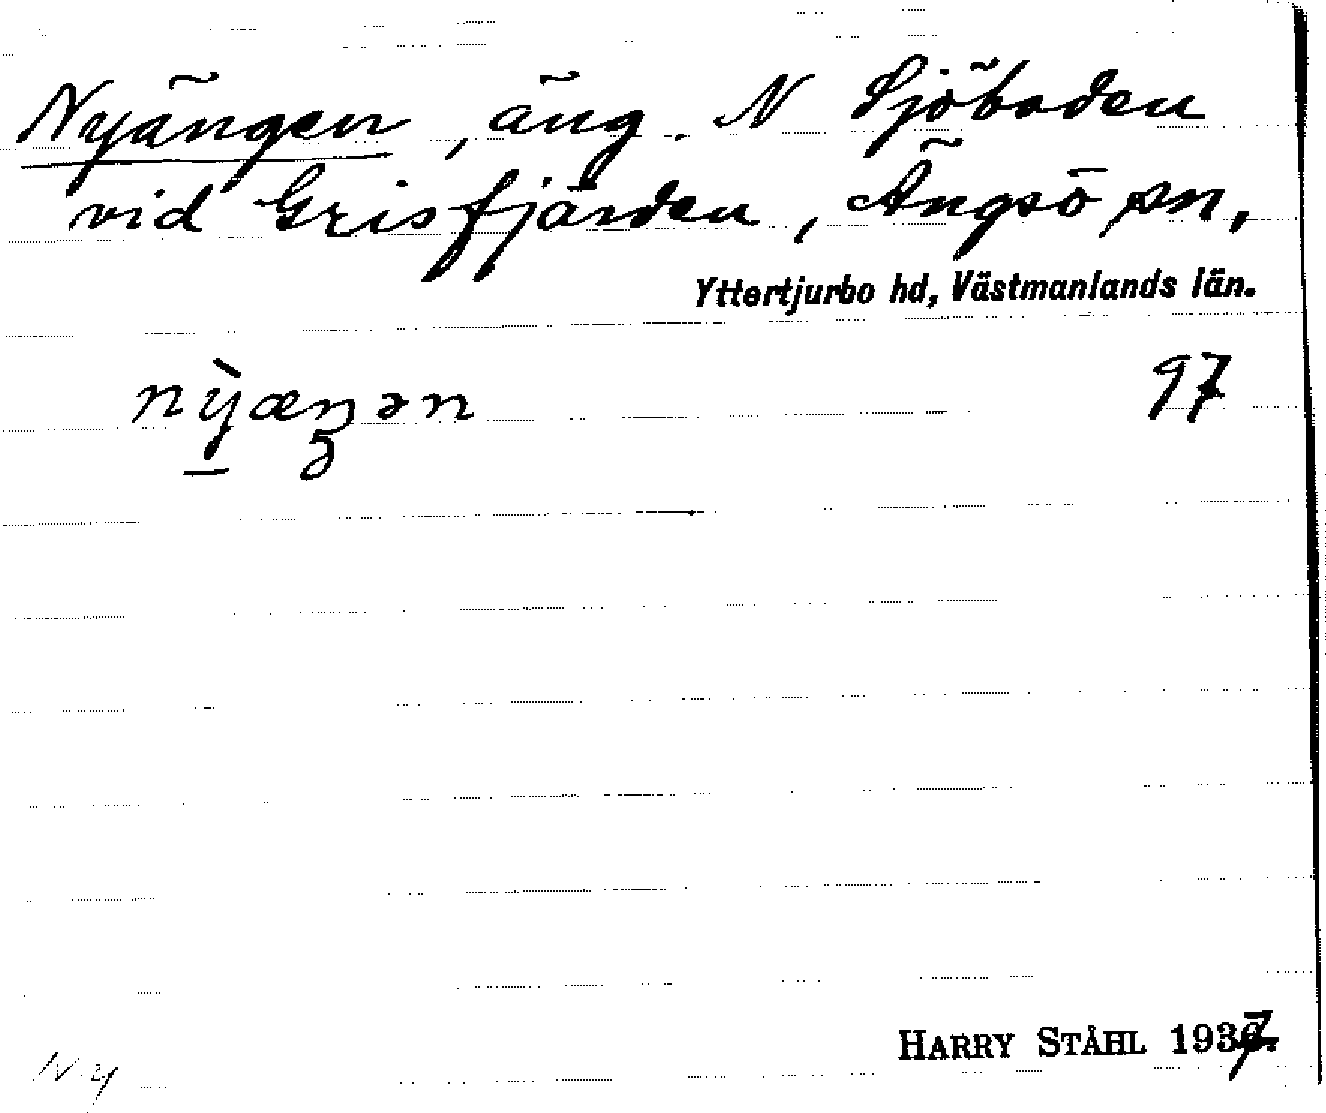 Nyängen, äng. N Sjöboden
vid Grisfjärden, Ängsö sn,
Yttertjurbo hd, Västmanlands län.
nỳæŋən 97
HARRY STÅHL 1937.
Ny